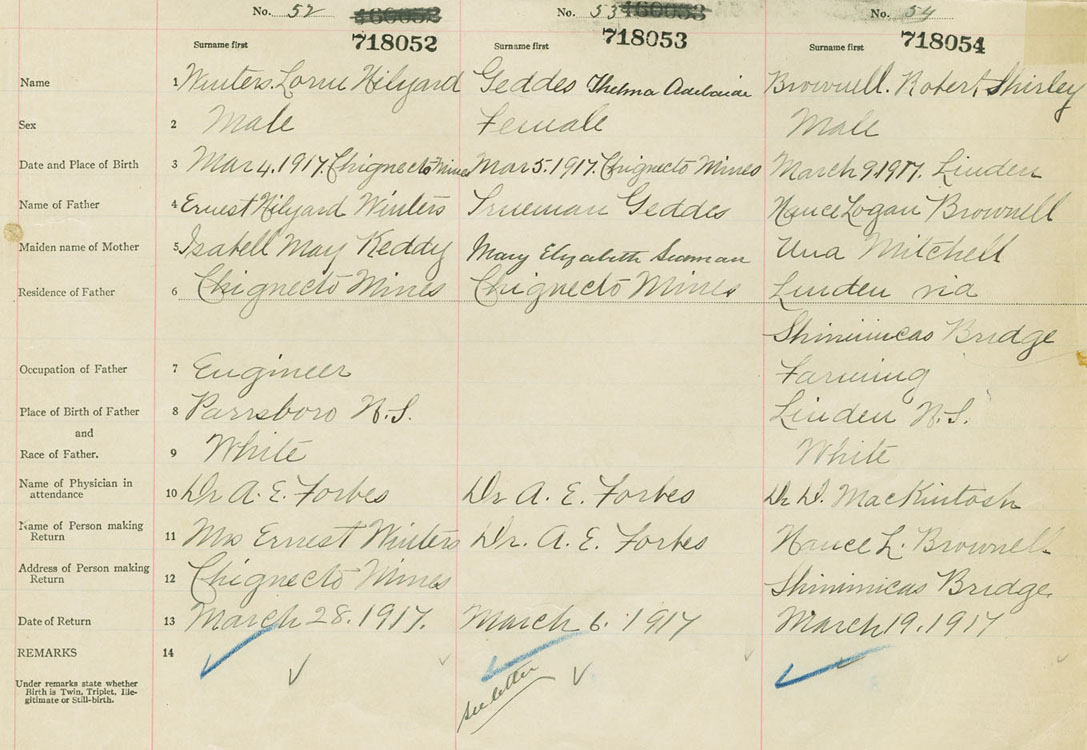 No. 52 No. 53 No. 54
718052 718053 718054
Surname first Surname first Surname first
Name 1 Winters. Lorne Hilyard Geddes Thelma Adelaide Brownell. Robert, Shirley
Sex 2 Male Female Male
Date and Place of Birth 3 Mar 4. 1917. Chignecto Mines Mar 5. 1917. Chignecto Mines March 9. 1917. Linden
Name of Father 4 Ernest Hilyard Winters Trueman Geddes Logan Brownell
Maiden name of Mother 5 Isabell May Keddy Mary Elizabeth Una Mitchell
Residence of Father 6 Chignecto Mines Chignecto Mines Linden via
Shinimicas Bridge
Occupation of Father 7 Engineer Farming
Place of Birth of Father 8 Parrsboro N.S. Linden N.S.
and
Race of Father. 9 White White
Name of Physician in
attendance 10 Dr A. E. Forbes Dr A. E. Forbes Dr D. MacKintosh
Name of Person making
Return 11 Mrs Ernest Winters Dr. A. E. Forbes L. Brownell
Address of Person making
Return 12 Chignecto Mines Shinimicas Bridge
Date of Return 13 March 28. 1917. March 6. 1917 March 19. 1917
REMARKS 14
see letter
Under remarks state whether
Birth is Twin, Triplet, Ille-
gitimate or Still-birth.